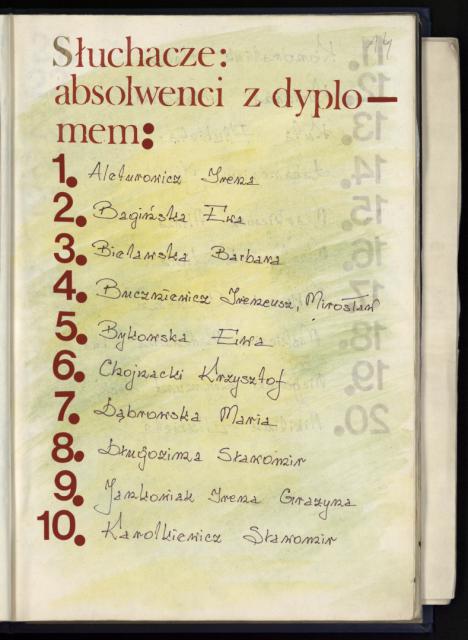 Słuchacze:
absolwenci z dyplo—
mem:
1. Aleturowicz Irena
2. Bagińska Ewa
3. Bielawska Barbara
4. Buczniewicz Ireneusz, Mirosław
5. Bykowska Ewa
6. Chojnacki Krzysztof
7. Dąbrowska Maria
8. Długozima Sławomir
9. Jankowiak Irena Grażyna
10. Karolkiewicz Sławomir